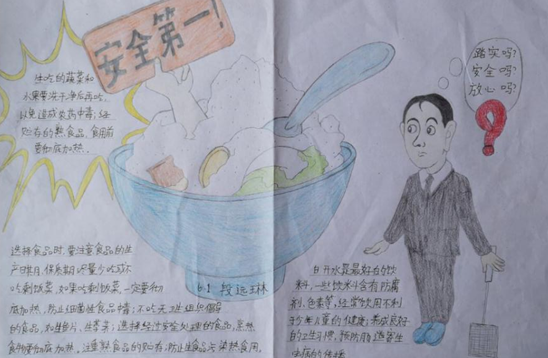 安全第一！
生吃的蔬菜和
水果要洗干净后再吃，
以免造成农药中毒；经
贮存的熟食品，食用前
要彻底加热。
踏实吗？
安全吗？
放心吗？
选择食品时，要注意食品的生
产日期、保质期；尽量少吃或不
吃剩饭菜，如果吃剩饭菜，一定要彻
底加热，防止细菌性食品中毒；不吃无卫生
的食品，选择经过安全处理的食品，
食物要彻底加热。注意熟食的贮存，防止生食品污染熟食用。
6.1
白开水是最好的饮
料，一些饮料含有防腐
剂、色素等，经常饮用不利
于少年儿童的健康；养成良好
的卫生习惯，预防肠道寄生